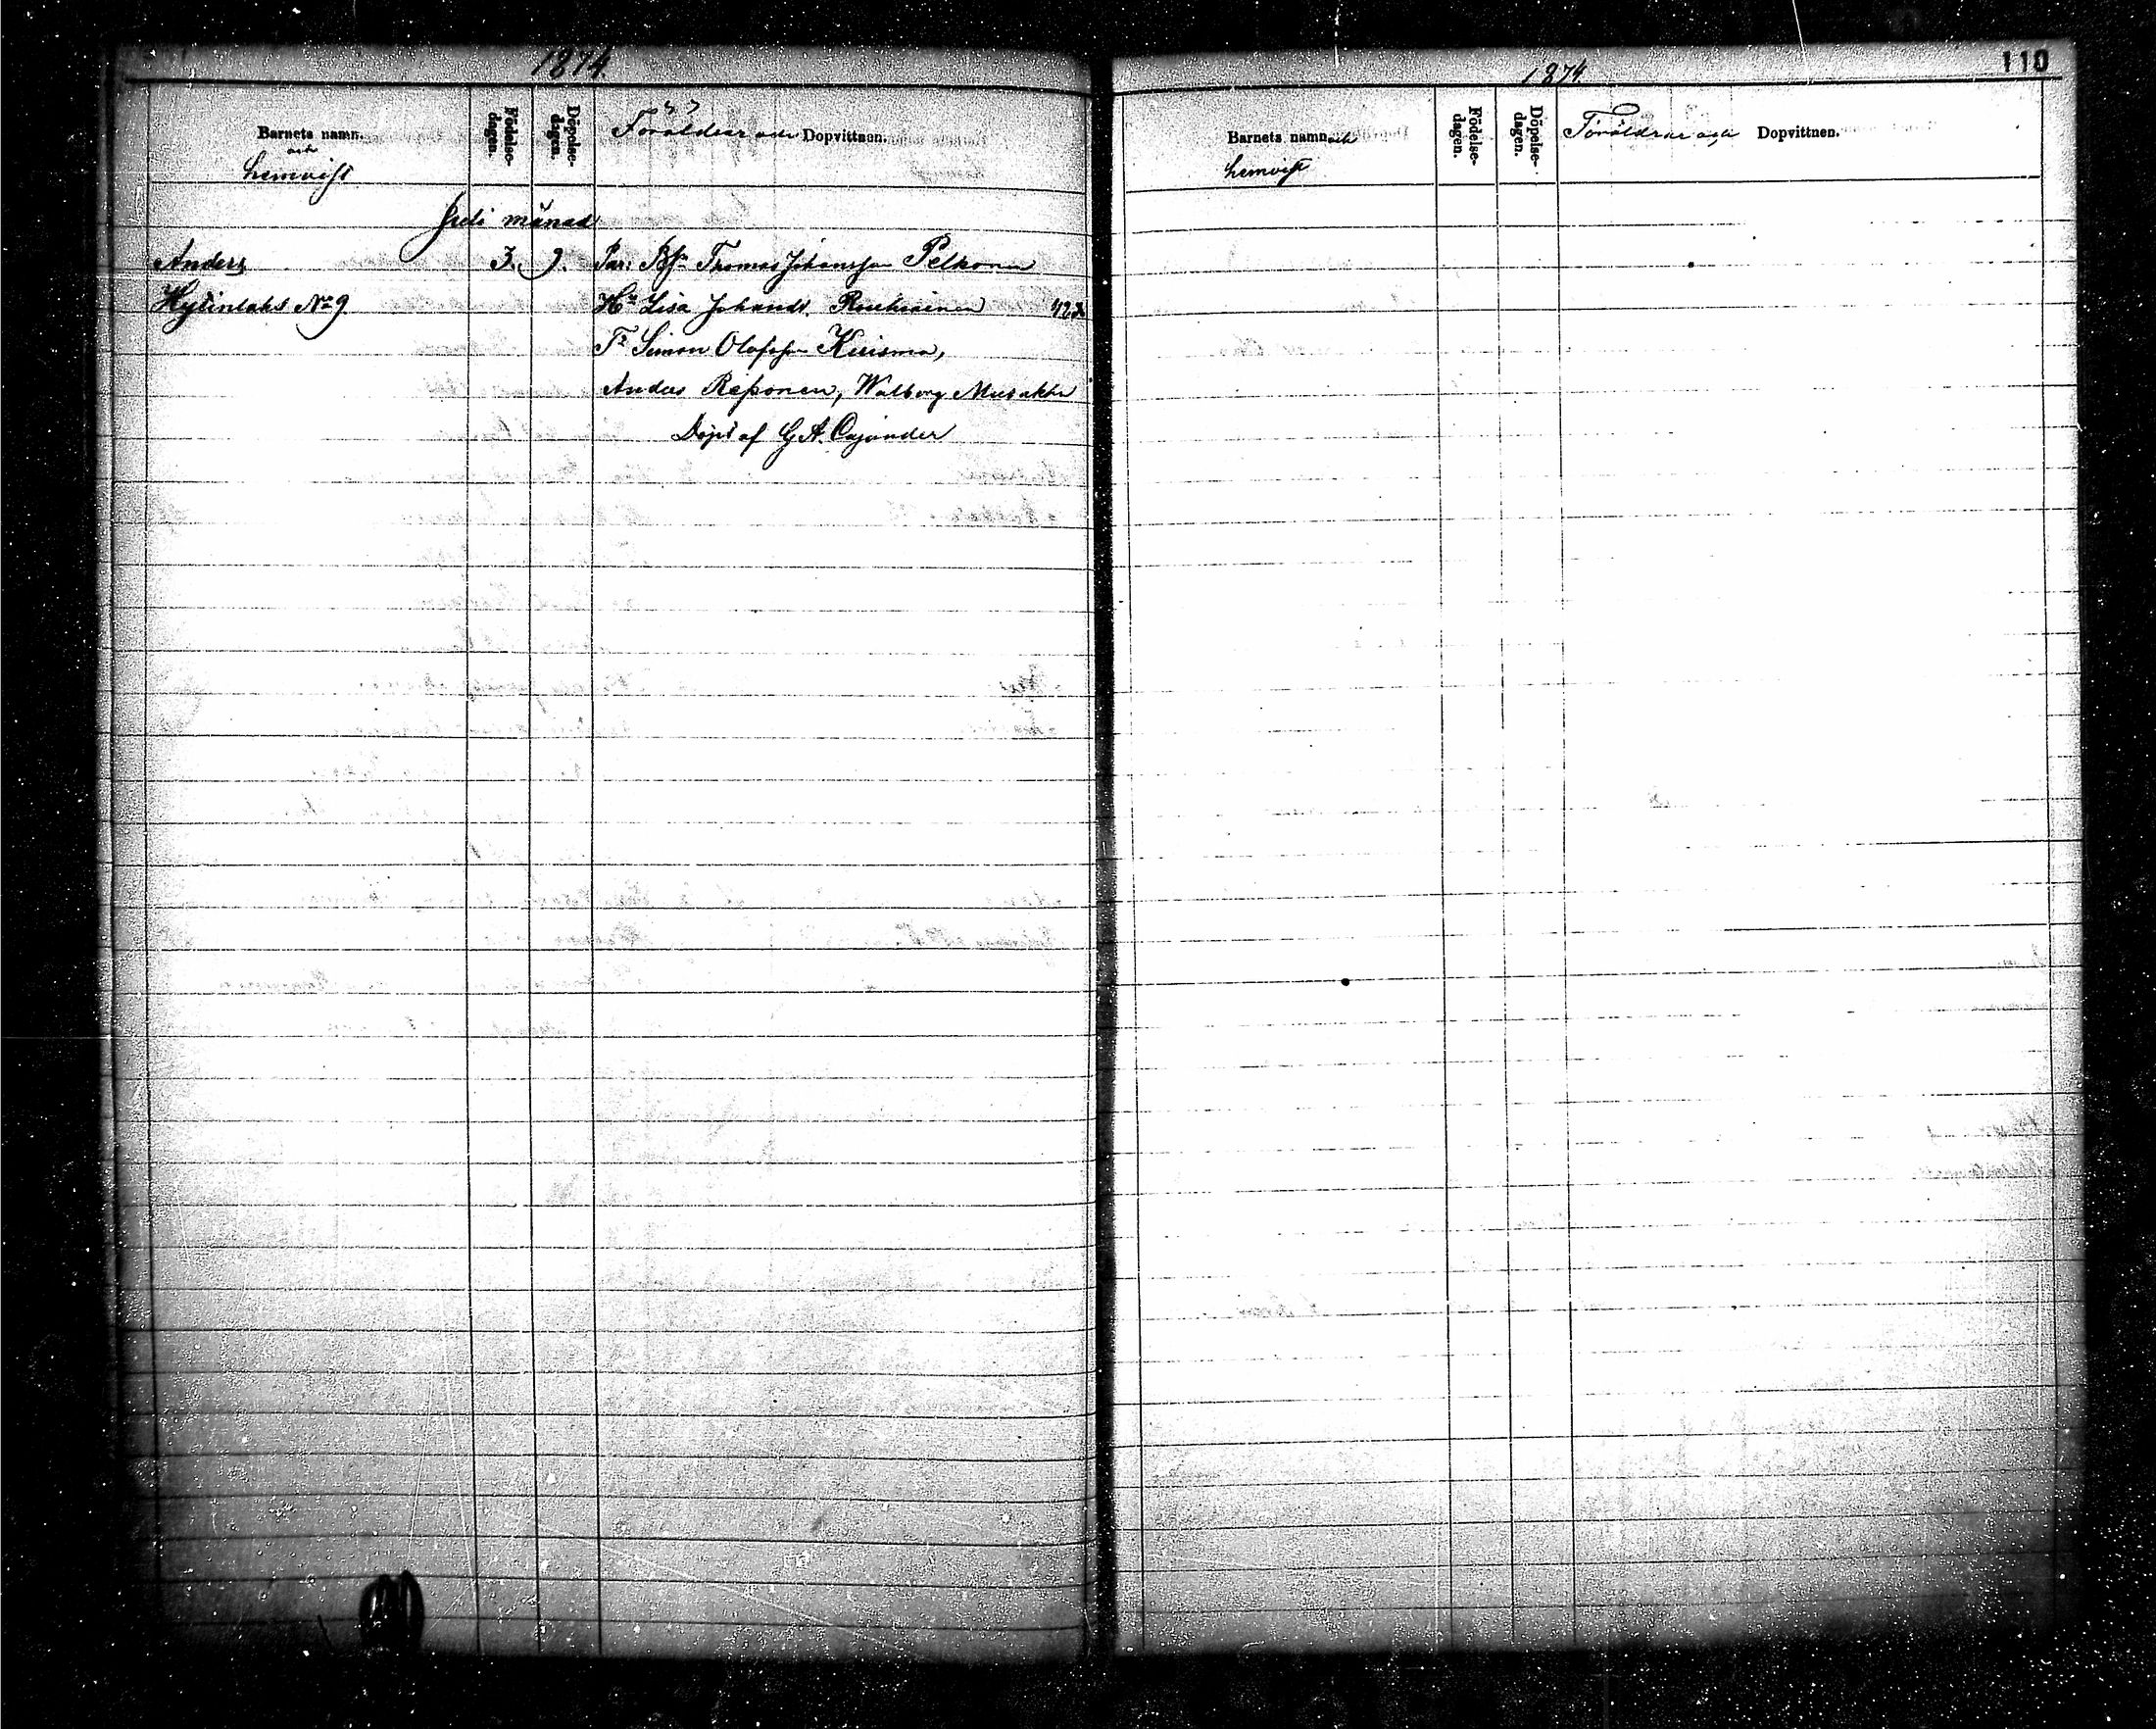 1874.
Barnets namn.
och
hemvist
Födelse-
dagen.
Döpelse-
dagen.
Föräldrar och Dopvittnen.
Juli månad
Anders 3. 9. Par: Thomas Johansson Pelkonen
Hytinlaks No 9 Hu Lisa Johansdr. Rouhiainen 422
Simon Olofsson Kiiisma,
Anders Reponen, Walborg
Döpt af G A. Cajander
1874.
110
Barnets namn och
hemvist
Födelse-
dagen.
Döpelse-
dagen.
Föräldrar och Dopvittnen.